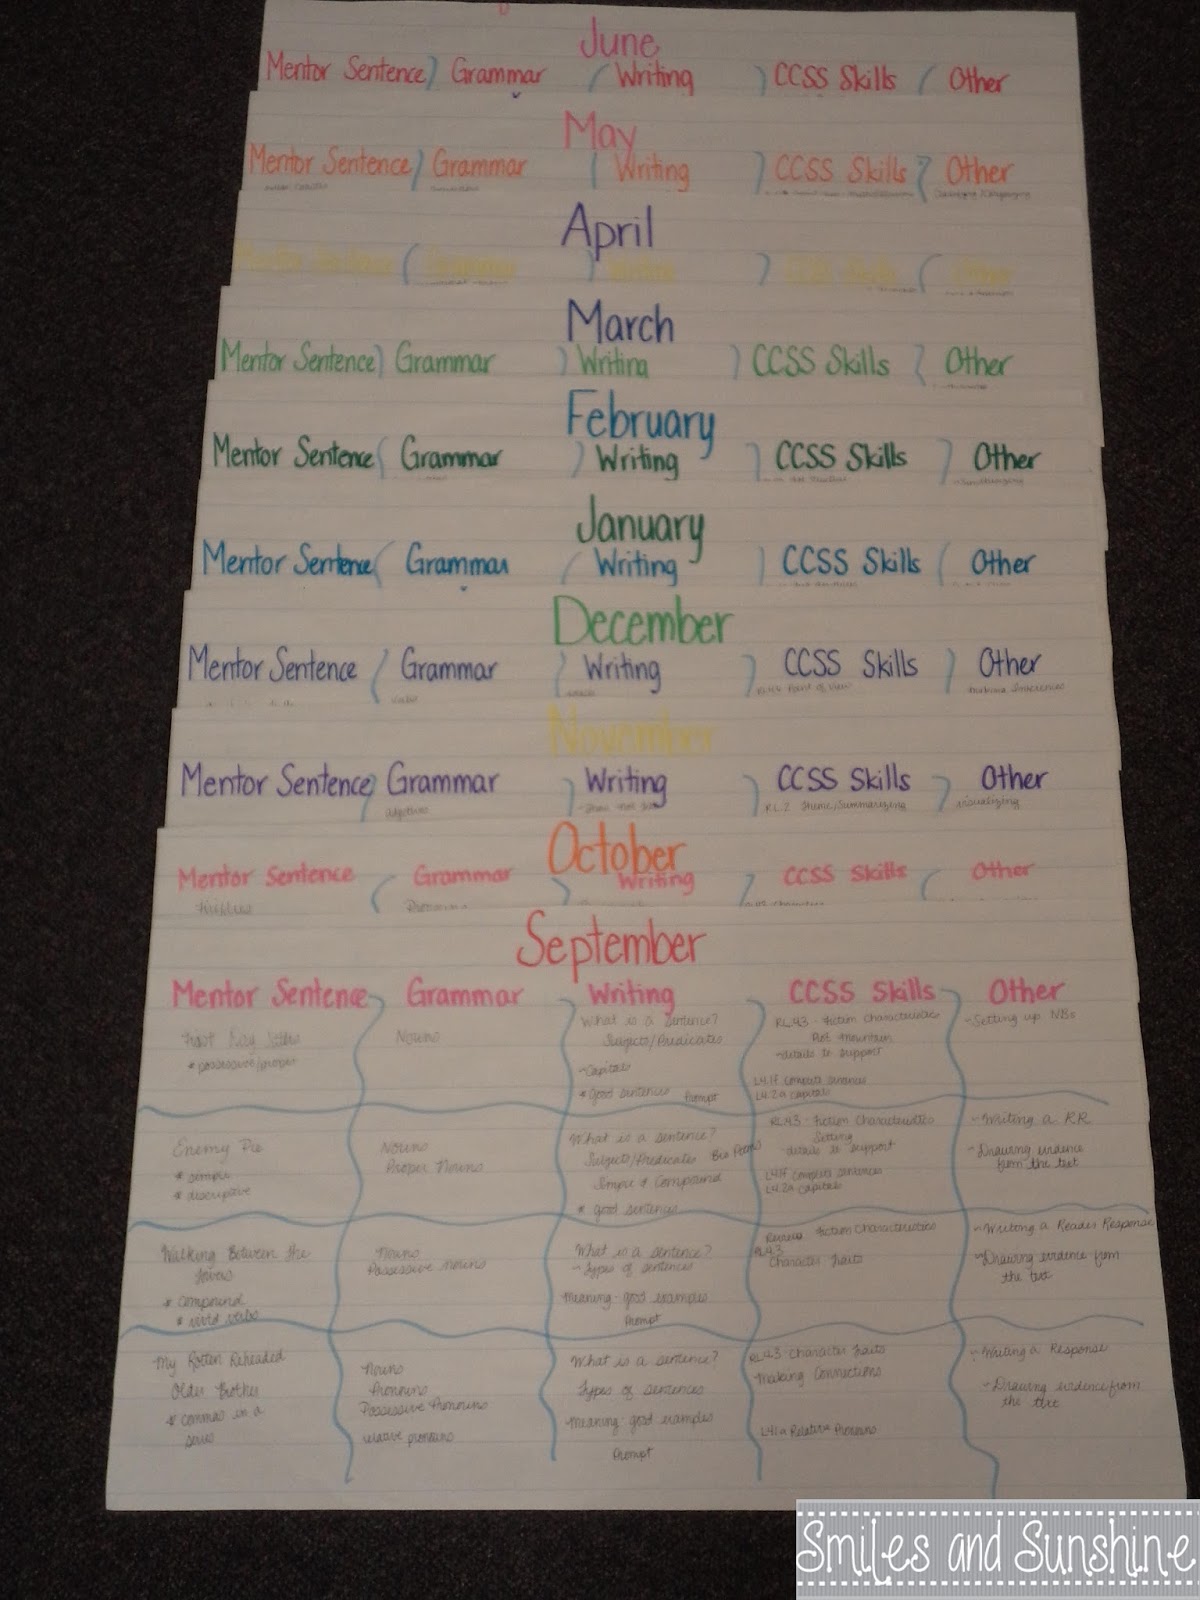 June
Mentor Sentence Grammar Writing CCSS Skills Other
May
Mentor Sentence Grammar Writing CCSS Skills Other
April
Mentor Sentence Grammar Writing CCSS Skills Other
March
Mentor Sentence Grammar Writing CCSS Skills Other
February
Mentor Sentence Grammar Writing CCSS Skills Other
January
Mentor Sentence Grammar Writing CCSS Skills Other
December
Mentor Sentence Grammar Writing CCSS Skills Other
Verbs RL.4.6 Point of View Making Inferences
November
Mentor Sentence Grammar Writing CCSS Skills Other
Adjectives RL.2 Theme/Summarizing Visualizing
October
Mentor Sentence Grammar Writing CCSS Skills Other
Thrillers Pronouns
September
Mentor Sentence Grammar Writing CCSS Skills Other
First Day Jitters
* possessive/proper
Nouns
What is a sentence?
Subjects/Predicates
~Capital
* Good sentences Prompt
RL43 - Fiction Characteristics
Plot mountain
~details to support
L4.1f complete sentences
L4.2a capital
~Setting up NBs
Enemy Pie
* simple
* descriptive
Nouns
Proper Nouns
What is a sentence?
Subjects/Predicates Bio Poems
Simple & Compound
* good sentences
RL43 - Fiction Characteristics
Setting
~details to support
L4.1f complete sentences
L4.2a capital
~Writing a RR
~Drawing evidence
from the text
Walking Between the
* compound
* vivid verbs
Nouns
Possessive Nouns
What is a sentence?
~Types of sentences
Meaning-good examples
Prompt
Review Fiction Characteristics
RL43
Character Traits
~Writing a Reader Response
~Drawing evidence from
the text
My Rotten Reheaded
Older Brother
* commas in a
series
Nouns
Pronouns
Possessive Pronouns
relative pronouns
What is a sentence?
Types of sentences
Meaning-good examples
Prompt
RL43 Character Traits
Making Connections
L41a Relative Pronouns
~Writing a Response
~Drawing evidence from
the text
Smiles and Sunshine